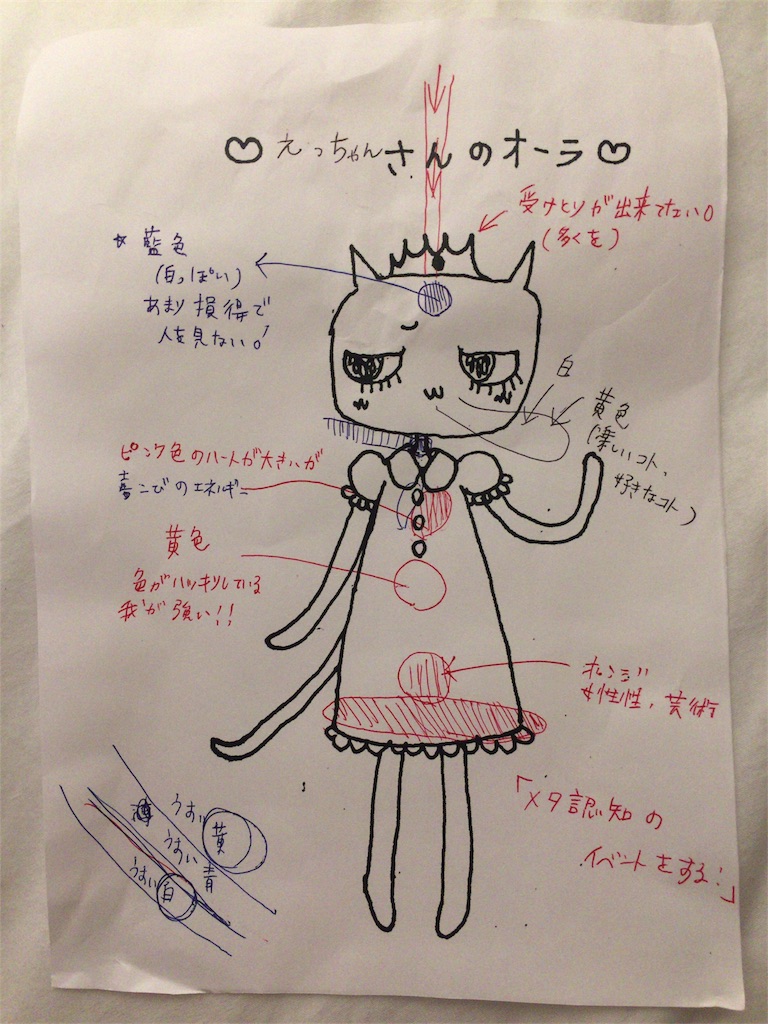 ♡えっちゃんさんのオーラ♡
受けとりが出来てない。
(多くを)
藍色
(白っぽい)
あまり損得で
人を見ない。
白
黄色
(楽しいコト、
好きなコト)
ピンク色のハートが大きいが
喜こびのエネルギー
黄色
色がハッキリしている
我が強い!!
オレンジ
女性性、芸術
「メタ認知の
イベントをする!」
うすい
黄
うすい
青
うすい
白